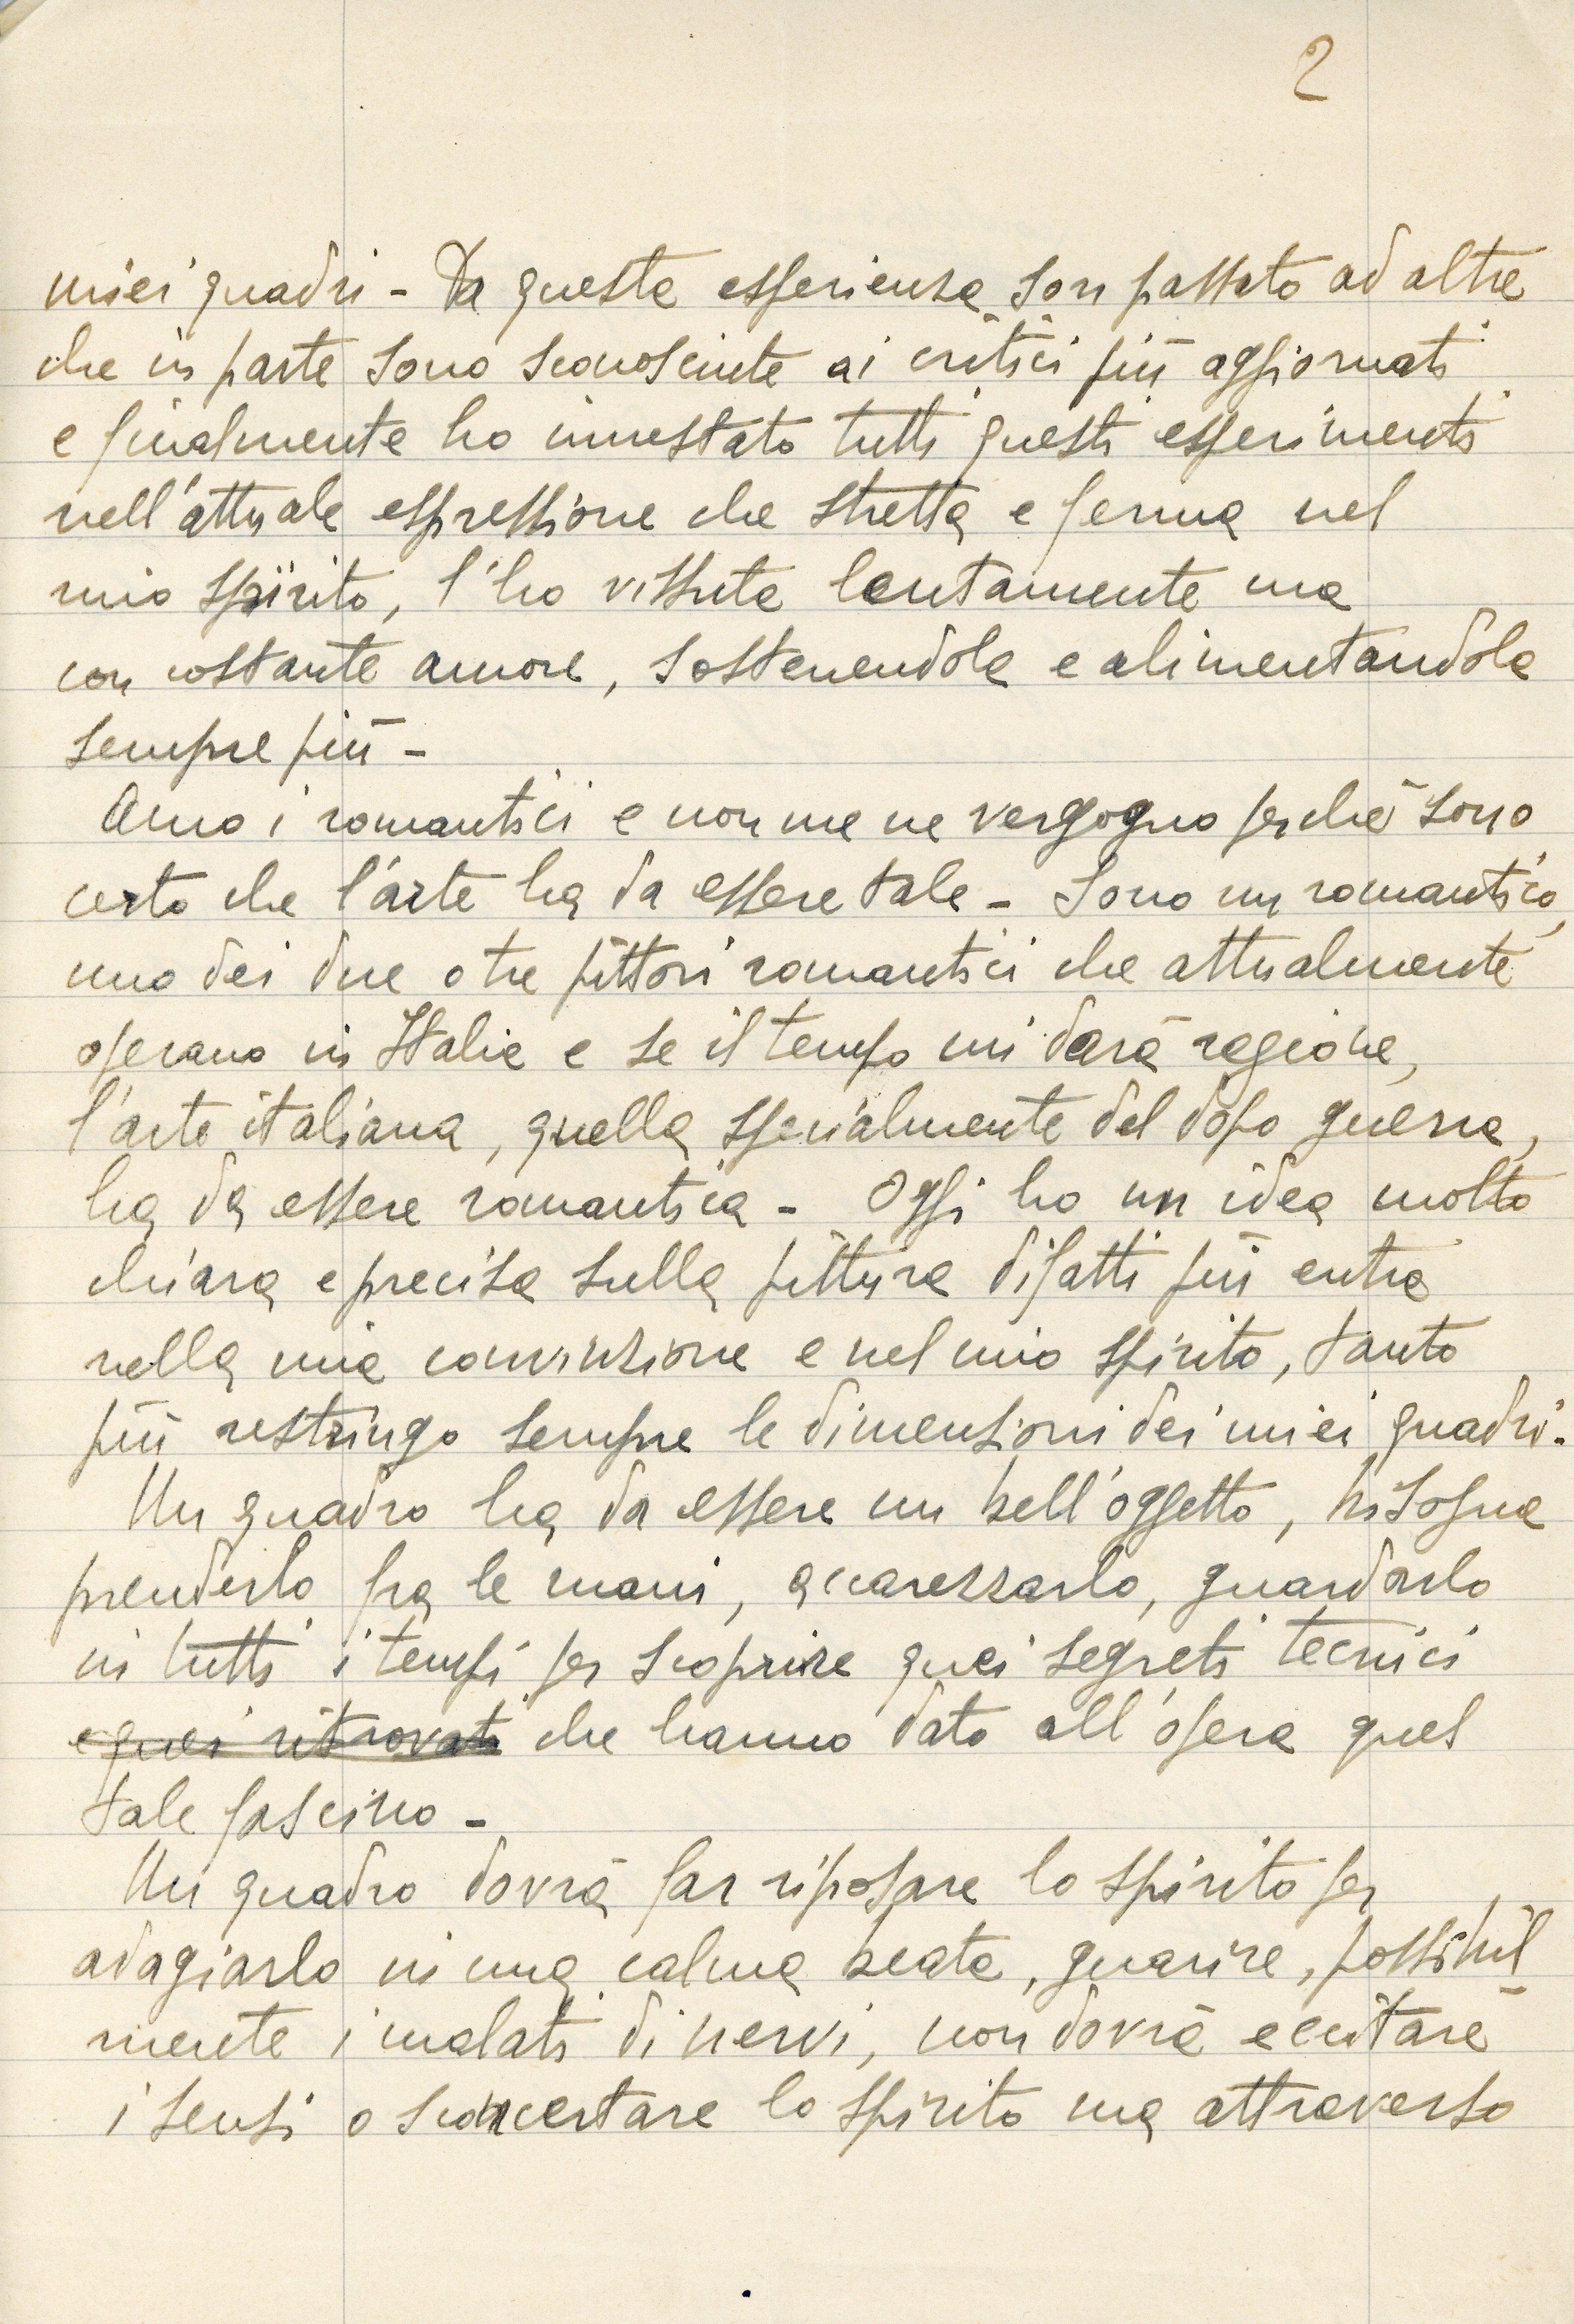 2
miei quadri - Da questa esperienza son passato ad altre
che in parte sono sconosciute ai critici più aggiornati
e finalmente ho innestato tutti questi esperimenti
nell'attuale espressione che stretta e ferma nel
mio spirito, l'ho vissuta lentamente ma
con costante amore, sostenendola e alimentandola
sempre più -
Amo i romantici e non me ne vergogno perchè sono
certo che l'arte ha da essere tale - Sono un romantico,
uno dei due o tre pittori romantici che attualmente
operano in Italia e se il tempo mi darà ragione,
l'arte italiana, quella specialmente del dopo guerra,
ha da essere romantica - Oggi ho un idea molto
chiara e precisa sulla pittura difatti più entra
nella mia convinzione e nel mio spirito, tanto
più restringo sempre le dimensioni dei miei quadri -
Un quadro ha da essere un bell'oggetto, bisogna
prenderlo fra le mani, accarezzarlo, guardarlo
in tutti i tempi per scoprire quei segreti tecnici
e quei ritrovati che hanno dato all'opera quel
tale fascino -
Un quadro dovrà far riposare lo spirito per
adagiarlo in una calma beata, guarire, possibil-
mente i malati di nervi, non dovrà eccitare
i sensi o sconcertare lo spirito ma attraverso